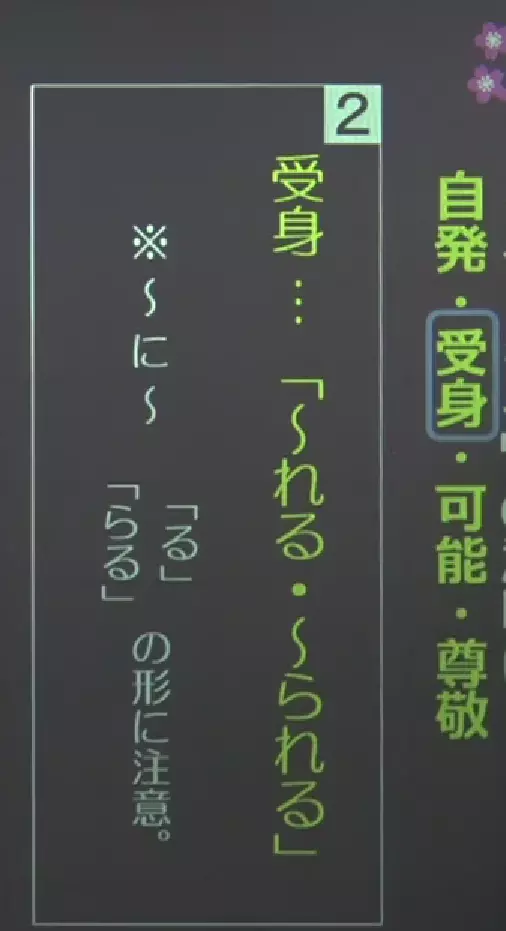 自発・受身・可能・尊敬
2
受身…「～れる・～られる」
※～に～「る」「らる」の形に注意。